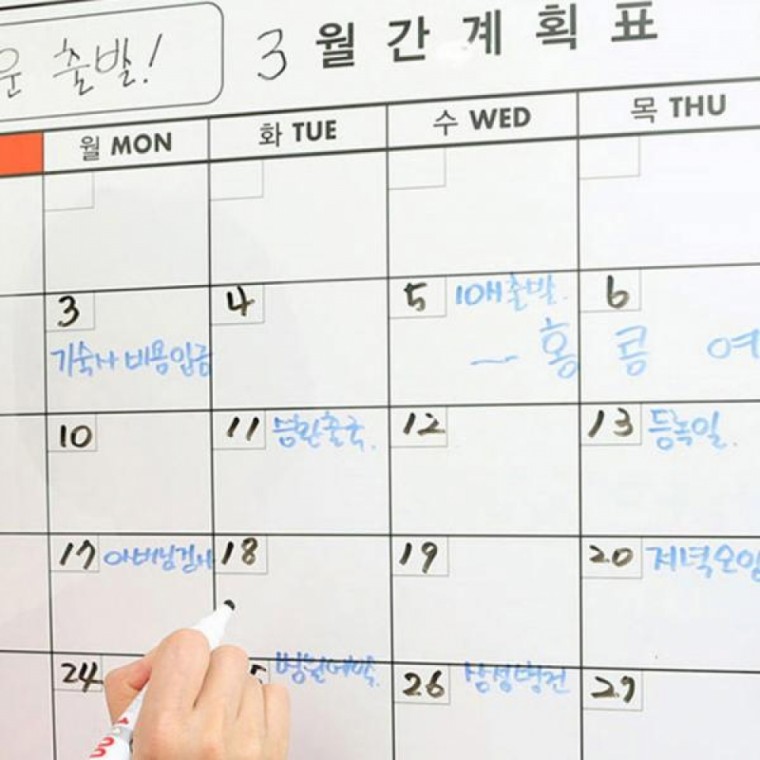 출발!
3 월간계획표
월 MON 화 TUE 수 WED 목 THU
3 4 5 10시출발. 6
기숙사 비용입금 — 홍콩 여
10 11 출국. 12 13 등록일.
17 아버님검사 18 19 20 저녁모임
24 5 병원예약. 26 27